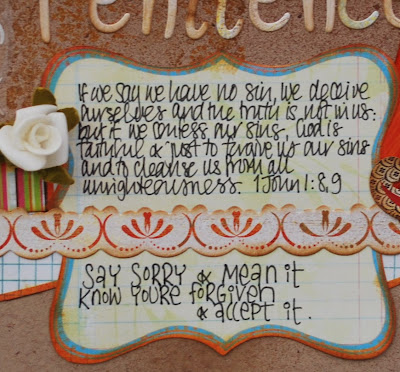 Penitence
If we say we have no sin, we deceive
ourselves and the truth is not in us:
but if we confess our sins, God is
faithful & just to forgive us our sins
and to cleanse us from all
unrighteousness. 1 John 1:8,9
SAY SORRY & MEAN it
KNOW YOU'RE FORGIVEN
& ACCEPT it.